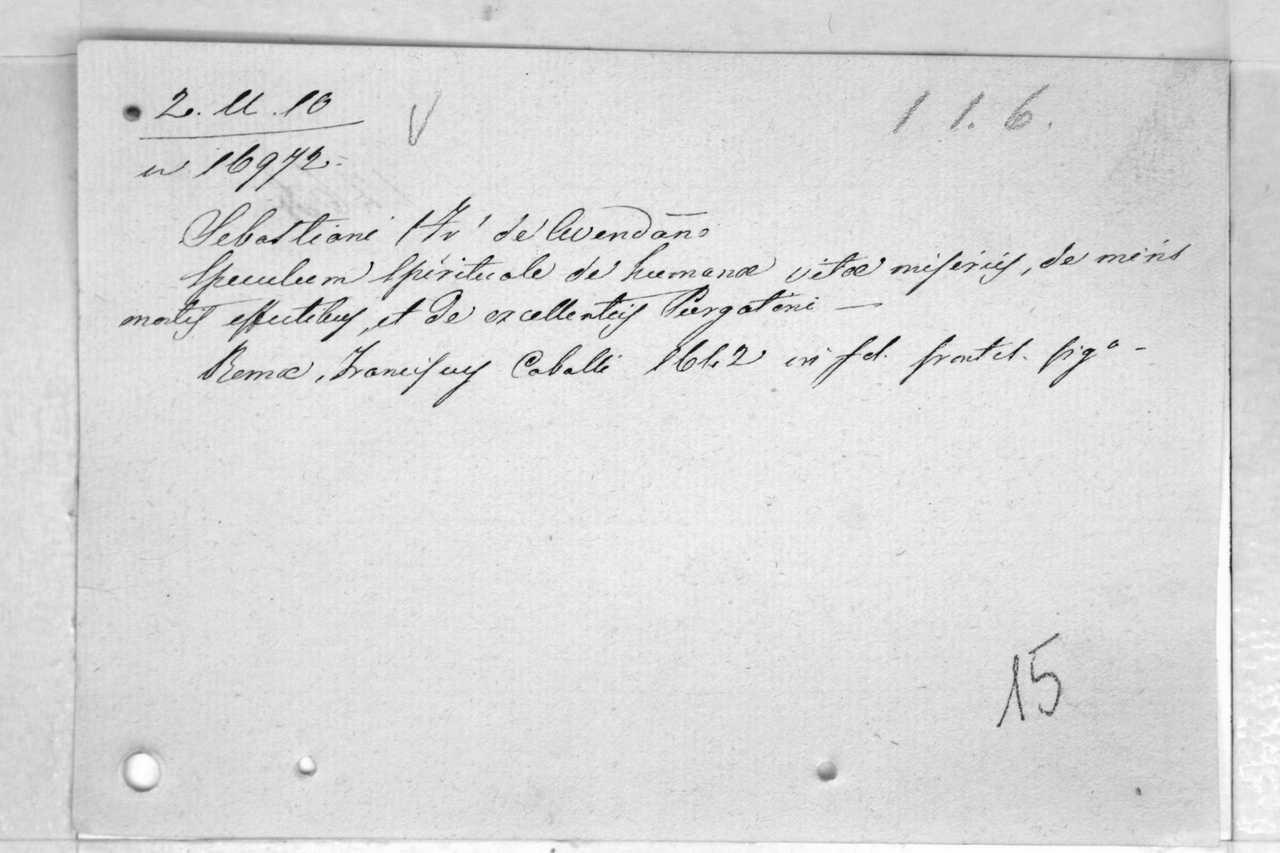 2. U. 10
V
1 1. 6.
n 16972
Sebastiani Fr' de Avendaño
Speculum Spirituale de humanæ vitæ miserijs, de miris
mortis effectibus, et de excellentijs Purgatorii —
Romæ, Franciscus Caballi 1642 in fol. frontisp. figª -
15